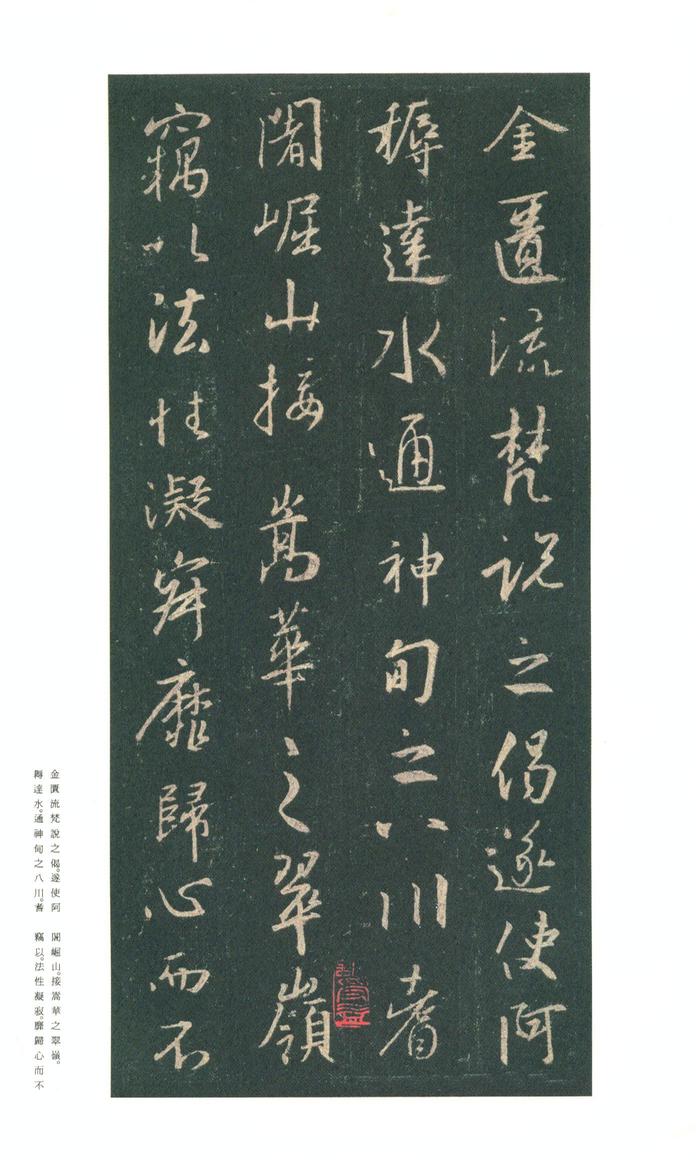 金匱流梵説之偈遂使阿
耨達水通神甸之八川耆
闍崛山接嵩華之翠嶺
竊以法性凝寂靡歸心而不
金匱流梵說之偈。遂使阿
耨達水。通神甸之八川。耆
闍崛山。接嵩華之翠嶺。
竊以。法性凝寂。靡歸心而不